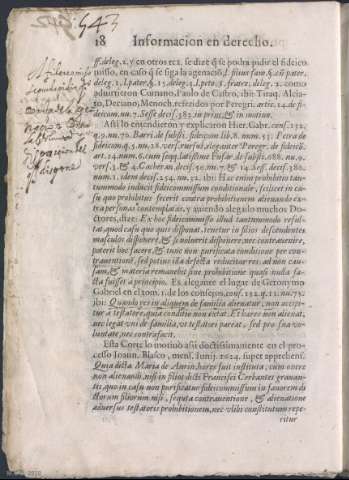 543
543
18 Informacion en derecho.
ff. deleg. 1. y en otros tex. se dize q̃ se podra pidir el fideico
misso, en caso q̃ se siga la agenació, l. filius fam. §. cũ pater.
deleg. 1. l. pater, §. 15. deleg. 3. l. peto. §. frater. deleg. 2. como
aduirtieron Curtuno, Paulo de Castro, ibi: Tiraq. Alcia-
to, Deciano, Menoch. referidos por Peregri. artic. 14. de fi-
deicom. nu. 7. Sesse deci. 382. in princ. & in motiuo.
Assi lo entendieron y explicaron Hier. Gabr. cons. 132.
q. 9. nu. 70. Barri. de substi. fideicom. lib. 8. num. 53. Petra de
fideicom. q. 5. nu. 28. vers. rursus, eleganter Peregr. de fideico.
art. 14. num. 6. cum seqq. latissime Fusar. de substi. 688. nu. 9.
vers. 3. & 4. Cacheran. deci. 56. nu. 7. & 14. Sess. deci. 380.
num. 1. idem deci. 254. nu. 22. ibi: Hæc enim prohibitio tan-
tummodo inducit fideicommissum conditionale, scilicet in ca-
su quo prohibitus fecerit contra prohibitionem alienando ex-
tra personas contemplatas, y auiendo alegado muchos Do-
ctores, dize: Ex hoc fideicommisso illud tantummodo resul-
tat, quod casu quo quis disponat, tenetur in filios descendentes
masculos disponere, & si noluerit disponere, nec contrauenire,
poterit hoc facere, & tunc non purificata conditione per con-
trauentionẽ, sed potius illa defecta reducitur res ad non cau-
sam, & materia remanebit sine prohibitione quasi nulla fa-
cta fuisset a principio. Es elegante el lugar de Geronymo
Gabriel en el tom. 1. de los consejos, cons. 132. q. 12. nu. 75.
ibi: Quando res in aliquem de familia alienatur, non accipi-
tur à testatore, quia conditio non extat. Et hæres non alienat,
nec legat vni de familia, vt testator pareat, sed pro sua vo-
luntate, nec contrafacit.
Esta Corte lo motiuó assi doctissimamente en el pro-
cesso Ioann. Blasco, mens. Iunij. 1624. super apprehens.
Quia dicta Maria de Antin, hæres fuit instituta, cum onere
non alienandi, nisi in filios dicti Francisci Cerbantes grauan-
tis, quo in casu non purificatur fideicommissum in fauorem di-
ctorum filiorum nisi, sequuta contrauentione, & alienatione
aduersus testatoris prohibitionem, nec vlibi constitutum repe-
ritur